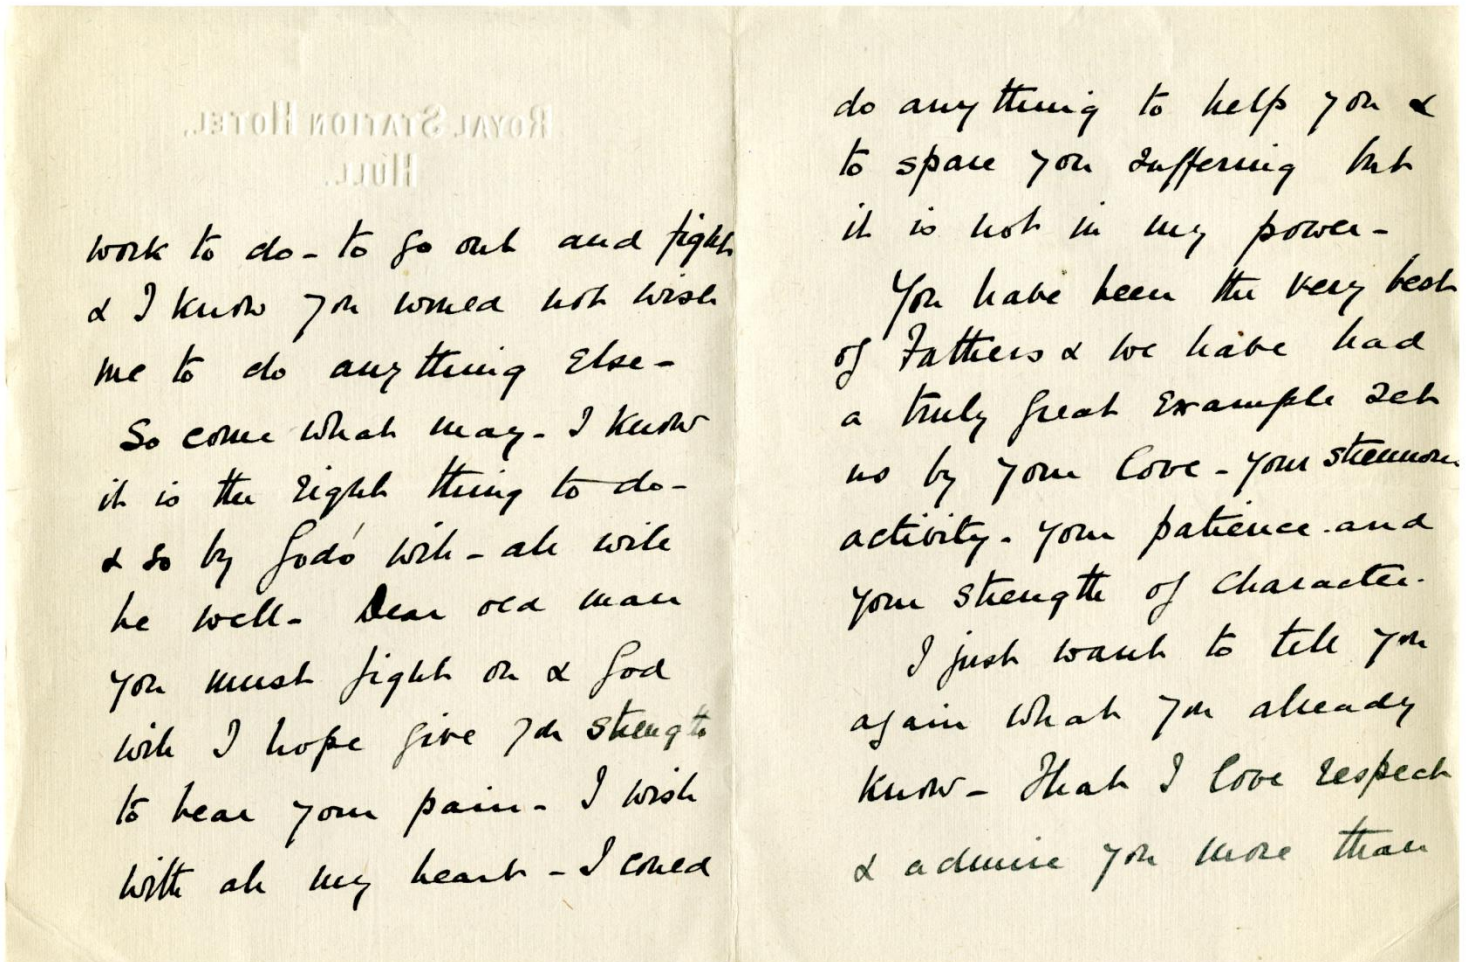 ROYAL STATION HOTEL,
HULL.
work to do - to go out and fight
& I know you would not wish
me to do anything else -
So come what may - I know
it is the right thing to do -
& so by God's will - all will
be well - Dear old man
you must fight on & God
will I hope give you strength
to bear your pain - I wish
with all my heart - I could
do anything to help you &
to spare you suffering but
it is not in my power -
You have been the very best
of Fathers & we have had
a truly great example set
us by your love - your strenuous
activity - your patience - and
your strength of character.
I just want to tell you
again what you already
know - That I love respect
& admire you more than